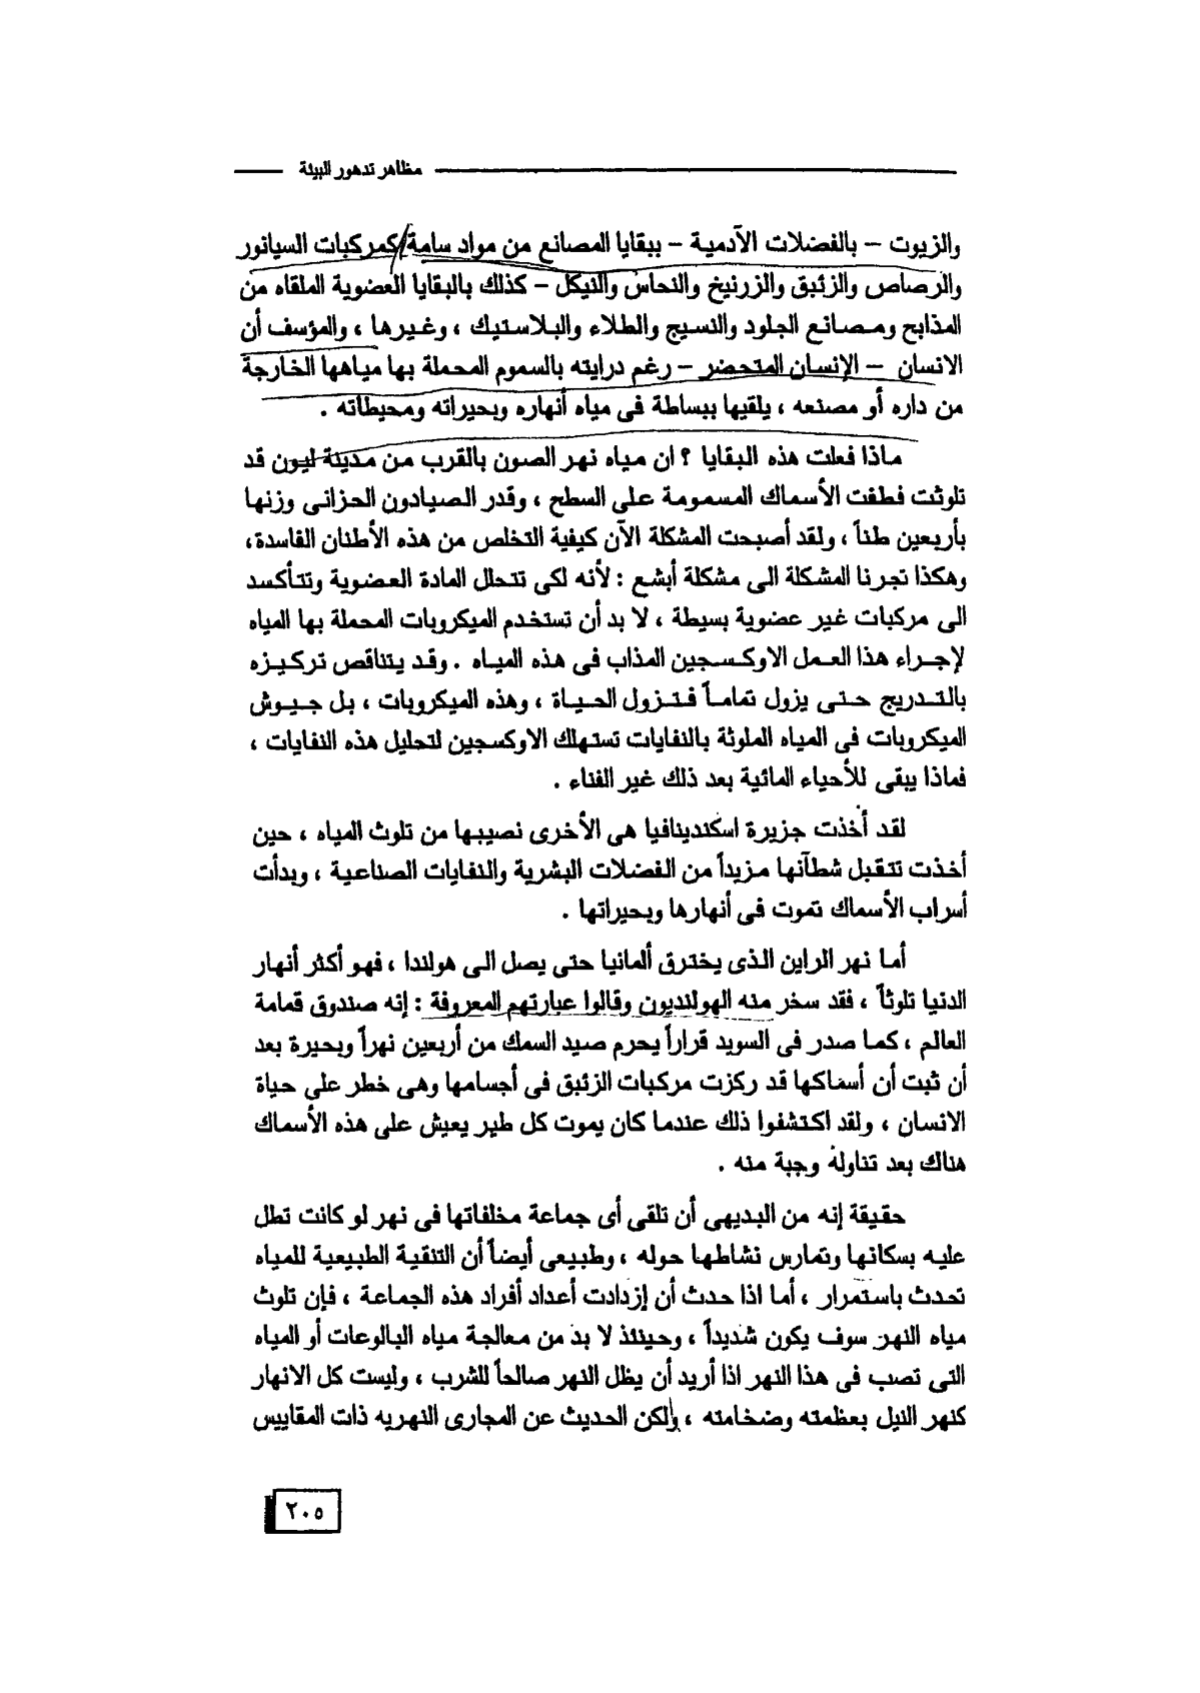 مظاهر تدهور البيئة
والزيوت – بالفضلات الآدمية – ببقايا المصانع من مواد سامة كمركبات السيانور
والرصاص والزئبق والزرنيخ والنحاس والنيكل – كذلك بالبقايا العضوية الملقاه من
المذابح ومصانع الجلود والنسيج والطلاء والبلاستيك ، وغيرها ، والمؤسف أن
الانسان – الإنسان المتحضر – رغم درايته بالسموم المحملة بها مياهها الخارجة
من داره أو مصنعه ، يلقيها ببساطة فى مياه أنهاره وبحيراته ومحيطاته .
ماذا فعلت هذه البقايا ؟ ان مياه نهر الصون بالقرب من مدينة ليون قد
تلوثت فطفت الأسماك المسمومة على السطح ، وقدر الصيادون الحزانى وزنها
بأربعين طناً ، ولقد أصبحت المشكلة الآن كيفية التخلص من هذه الأطنان الفاسدة،
وهكذا تجرنا المشكلة الى مشكلة أبشع : لأنه لكى تتحلل المادة العضوية وتتأكسد
الى مركبات غير عضوية بسيطة ، لا بد أن تستخدم الميكروبات المحملة بها المياه
لإجراء هذا العمل الاوكسجين المذاب فى هذه المياه . وقد يتناقص تركيزه
بالتدريج حتى يزول تماماً فتزول الحياة ، وهذه الميكروبات ، بل جيوش
الميكروبات فى المياه الملوثة بالنفايات تستهلك الاوكسجين لتحليل هذه النفايات ،
فماذا يبقى للأحياء المائية بعد ذلك غير الفناء .
لقد أخذت جزيرة اسكندينافيا هى الأخرى نصيبها من تلوث المياه ، حين
أخذت تتقبل شطآنها مزيداً من الفضلات البشرية والنفايات الصناعية ، وبدأت
أسراب الأسماك تموت فى أنهارها وبحيراتها .
أما نهر الراين الذى يخترق ألمانيا حتى يصل الى هولندا ، فهو أكثر أنهار
الدنيا تلوثاً ، فقد سخر منه الهولنديون وقالوا عبارتهم المعروفة : إنه صندوق قمامة
العالم ، كما صدر فى السويد قراراً يحرم صيد السمك من أربعين نهراً وبحيرة بعد
أن ثبت أن أسماكها قد ركزت مركبات الزئبق فى أجسامها وهى خطر على حياة
الانسان ، ولقد اكتشفوا ذلك عندما كان يموت كل طير يعيش على هذه الأسماك
هناك بعد تناوله وجبة منه .
حقيقة إنه من البديهى أن تلقى أى جماعة مخلفاتها فى نهر لو كانت تطل
عليه بسكانها وتمارس نشاطها حوله ، وطبيعى أيضاً أن التنقية الطبيعية للمياه
تحدث باستمرار ، أما اذا حدث أن إزدادت أعداد أفراد هذه الجماعة ، فإن تلوث
مياه النهر سوف يكون شديداً ، وحينئذ لا بد من معالجة مياه البالوعات أو المياه
التى تصب فى هذا النهر اذا أريد أن يظل النهر صالحاً للشرب ، وليست كل الانهار
كنهر النيل بعظمته وضخامته ، ولكن الحديث عن المجارى النهريه ذات المقاييس
٢٠٥